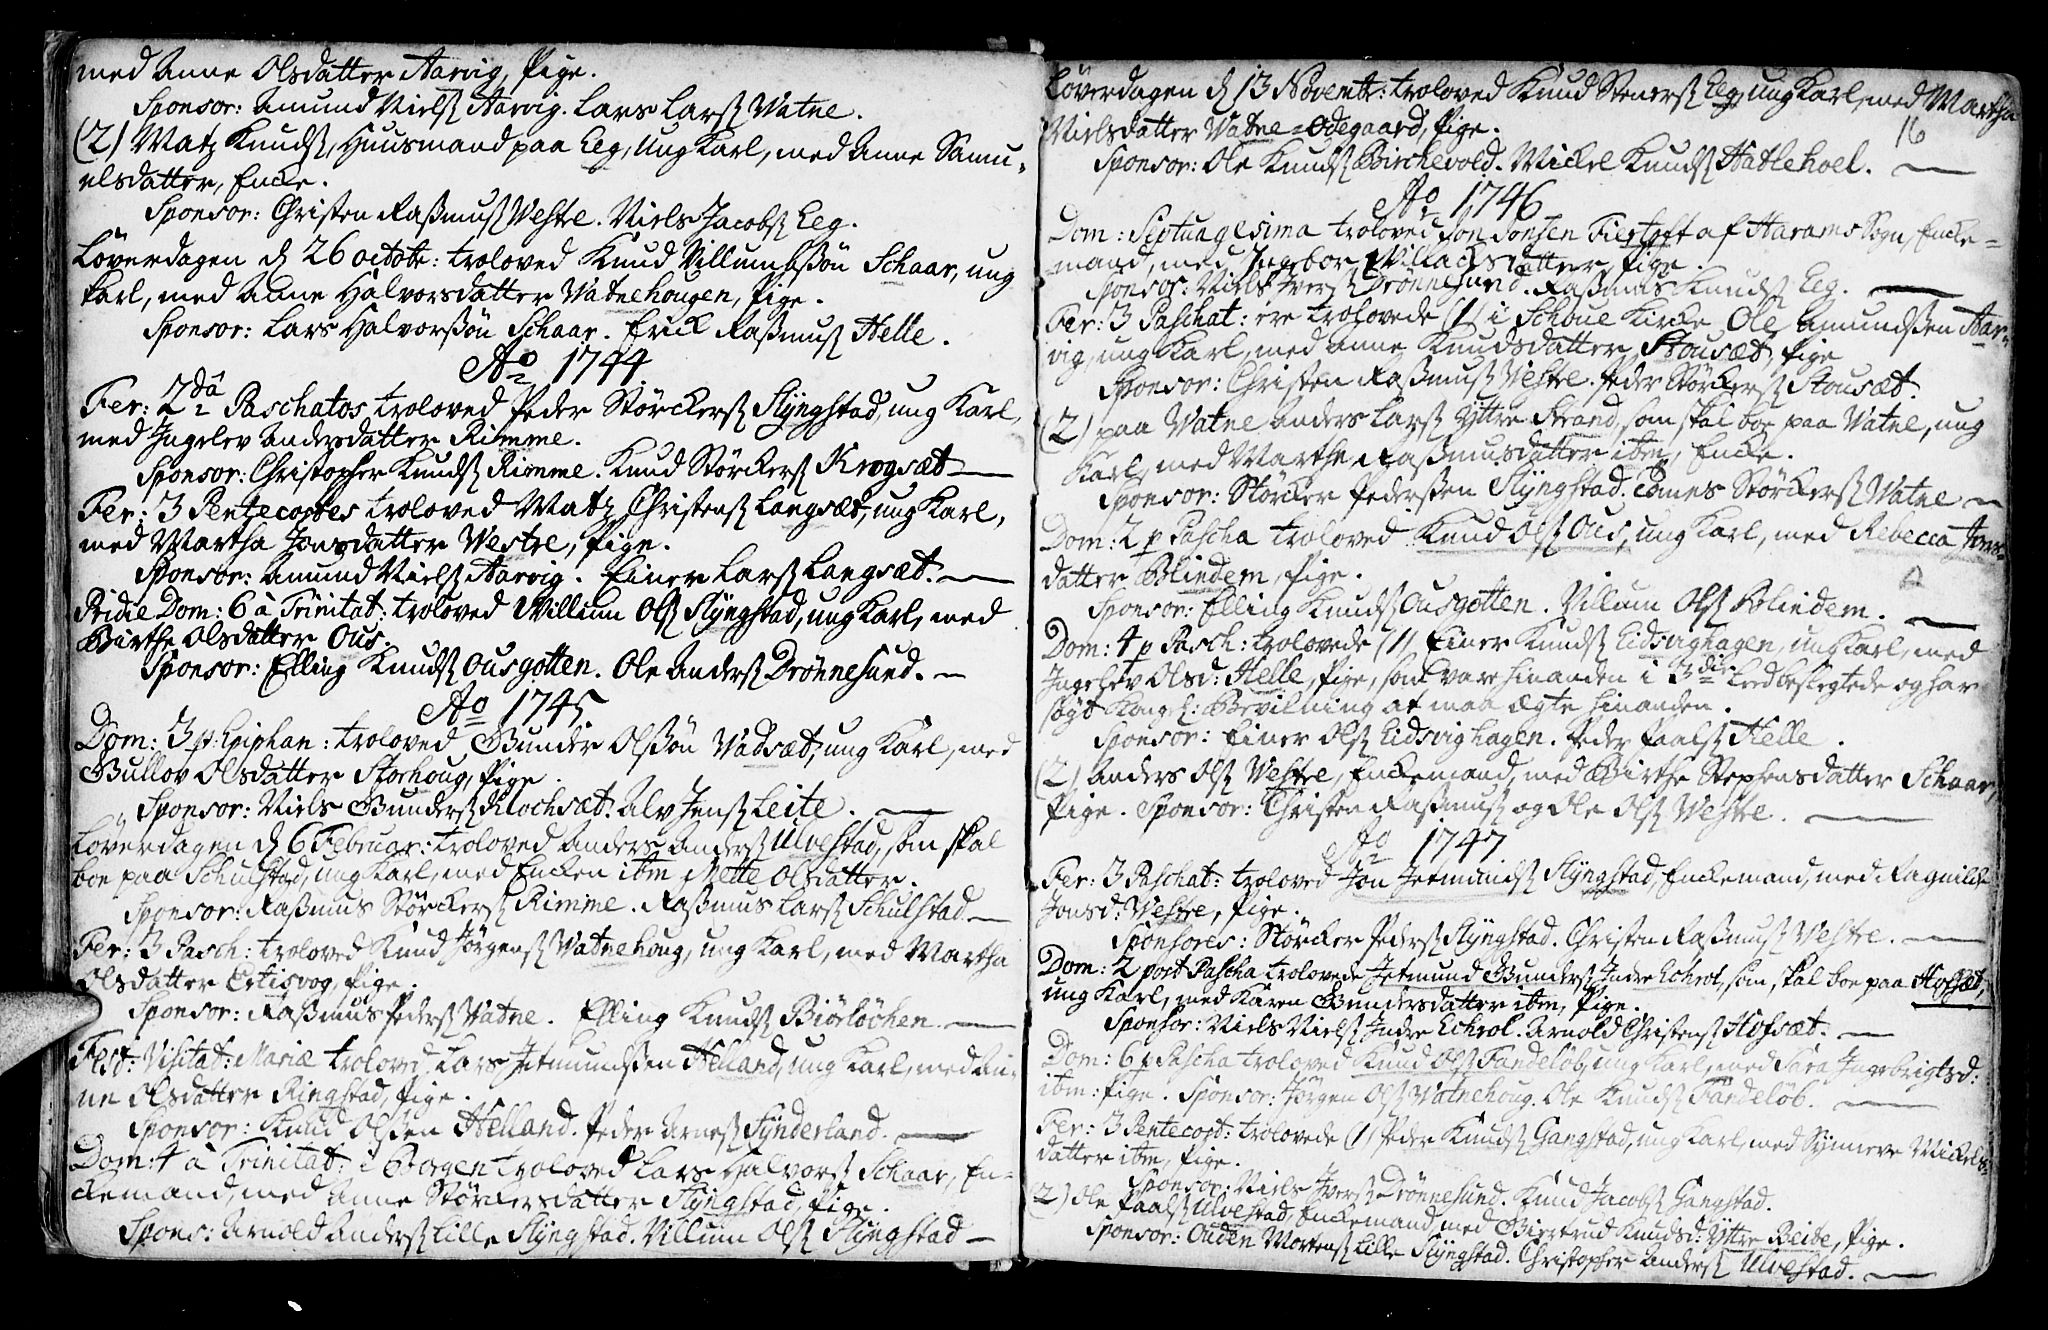 med Anne Olsdatter Aarvig, Pige.
Sponsor: Amund Nielsß Aarvig. Lars Larsß Watne.
(2) Matz Knudsß, Huusmand paa Eeg, ung Karl, med Anne Samu-
elsdatter, Encke.
Sponsor: Christen Raßmusß Westre. Niels Jacobsß Eeg.
Löverdagen d 26 octobr: troloved Knud Villumßøn Schaar, ung
Karl, med Anne Halvorsdatter Watnehougen, Pige.
Sponsor: Lars Halvorßøn Schaar. Erick Raßmusß Helle.
Ao 1744
Fer: 2da Paschatos troloved Peder Störckersß Slÿngstad, ung Karl,
med Ingelev Andersdatter Rimme.
Sponsor: Christopher Knudsß Rimme. Knud Störckersß Krogsæt
Fer: 3 Pentecostes troloved Matz Christensß Langsæt, ung Karl,
med Martha Jonsdatter Westre, Pige.
Sponsor: Amund Nielsß Aarvig. Einer Larsß Langsæt.
Pridie Dom: 6 à Trinitat: troloved Willum Olsß Slÿngstad, ung Karl, med
Birthe Olsdatter Ous.
Sponsor: Elling Knudsß Ousgotten. Ole Andersß Drönnesund.
Ao 1745.
Dom: 3 p. Epiphan: troloved Gunder Olßøn Vadsæt, ung Karl, med
Gullov Olsdatter Storhoug, Pige.
Sponsor: Niels Gundersß Klochsæt. Alv Jensß Leite.
Löverdagen d 6 Februar: troloved Anders Andersß Ulvestad, som skal
boe paa Schulstad, ung Karl, med Encken ibm Mette Olsdatter.
Sponsor: Raßmus Störckersß Rimme. Raßmus Larsß Schulstad
Fer: 3 Pasch: troloved Knud Jörgensß Watnehoug, ung Karl, med Martha
Olsdatter Ertisvog, Pige.
Sponsor: Raßmus Pedersß Vatne. Elling Knudsß Biörlöchen
Fest: Visitat: Mariæ troloved Lars Jetmundßen Helland, ung Karl, med An-
ne Olsdatter Ringstad, Pige.
Sponsor: Knud Olßen Helland. Peder Arnesß Sÿnderland.
Dom: 4 à Trinitat: i Borgen troloved Lars Halvorsß Schaar, En-
ckemand, med Anne Störckersdatter Slÿngstad, Pige.
Spons: Arnold Andersß Lille Slÿngstad. Villum Olsß Slÿngstad
Löverdagen d 13 Novembr: troloved Knud Stenersß Eeg, ung Karl, med Martha
Nielsdatter Vatne=Ödegaard, Pige.
16
Sponsor: Ole Knudsß Birchevold. Mickel Knudsß Hatlehoel.
Ao 1746
Dom: Septuagesima troloved Jon Jonsen Fiertoft af Harams Sogn, Encke=
mand, med Ingebor Willachsdatter, Pige.
Sponsor: Niels Iversß Drönnesund. Raßmus Knudsß Eeg.
Fer: 3 Paschat: ere trolovede (1) i Schoue Kircke Ole Amundßen Aar-
vig, ung Karl, med Anne Knudsdatter Stousæt, Pige
Sponsor: Christen Raßmusß Vestre. Peder Störckersß Stousæt.
(2) paa Vatne Anders Larsß Yttre Strand, som skal boe paa Vatne, ung
Karl, med Marthe Raßmusdatter ibm, Encke.
Sponsor: Störcker Pederßen Slÿngstad. Störckersß Watne
Dom: 2 p Pascha troloved Knud Olsß Ous, ung Karl, med Rebecca
datter Blindem, Pige.
Sponsor: Elling Knudsß Ousgotten. Villum Olsß Blindem.
Dom: 4 p Pasch: trolovede (1) Einer Knudsß Eidsvighagen, ung Karl, med
Ingelev Olsd: Helle, Pige, som vare hinanden i 3die Leed beslegtede og har
søgt Kongel: Bevilning at maa ægte hinanden.
Sponsor: Einer Olsß Eidsvighagen. Peder Paalsß Helle.
(2) Anders Olsß Westre, Enckemand, med Birthe Stephensdatter Schaar,
Pige. Sponsor: Christen Raßmusß og Ole Olsß Westre.
Ao 1747
Fer: 3 Paschat: troloved Jon Jetmundsß Slÿngstad, Enckemand, med Ragnilde
Jonsd: Westre, Pige.
Sponsores: Störcker Pedersß Slÿngstad. Christen Raßmusß Westre.
Dom: 2 post Pascha trolovede Jetmund Gundersß Indre Echrol, som skal boe paa Hofsæt,
ung Karl, med Karen Gundersdatter ibm, Pige.
Sponsor: Niels Nielsß Indre Echrol. Arnold Christensß Hofsæt.
Dom: 6 p Pascha troloved Knud Olsß Fandelöb, ung Karl, med Sara Ingebrigtsd:
ibm: Pige. Sponsor: Jörgen Olsß Watnehoug. Ole Knudsß Fandelöb.
Fer: 3 Pentecost: trolovede (1) Peder Knudsß Gangstad, ung Karl, med Synneve Mickels-
datter ibm, Pige.
Sponsor: Niels Iversß Drönnesund. Knud Jacobsß Gangstad.
(2) Ole Paalsß Ulvestad, Enckemand, med Giertrud Knudsd: Yttre Beite, Pige.
Sponsor: Ouden Mortensß Lille Slÿngstad. Christopher Andersß Ulvestad.